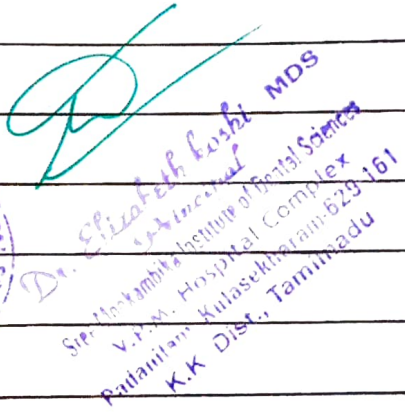 Dr. Elizabeth Koshi MDS
Principal
Sree Mookambika Institute of Dental Sciences
V.P.M. Hospital Complex
Padanilam, Kulasekharam-629 161
K.K Dist., Tamilnadu